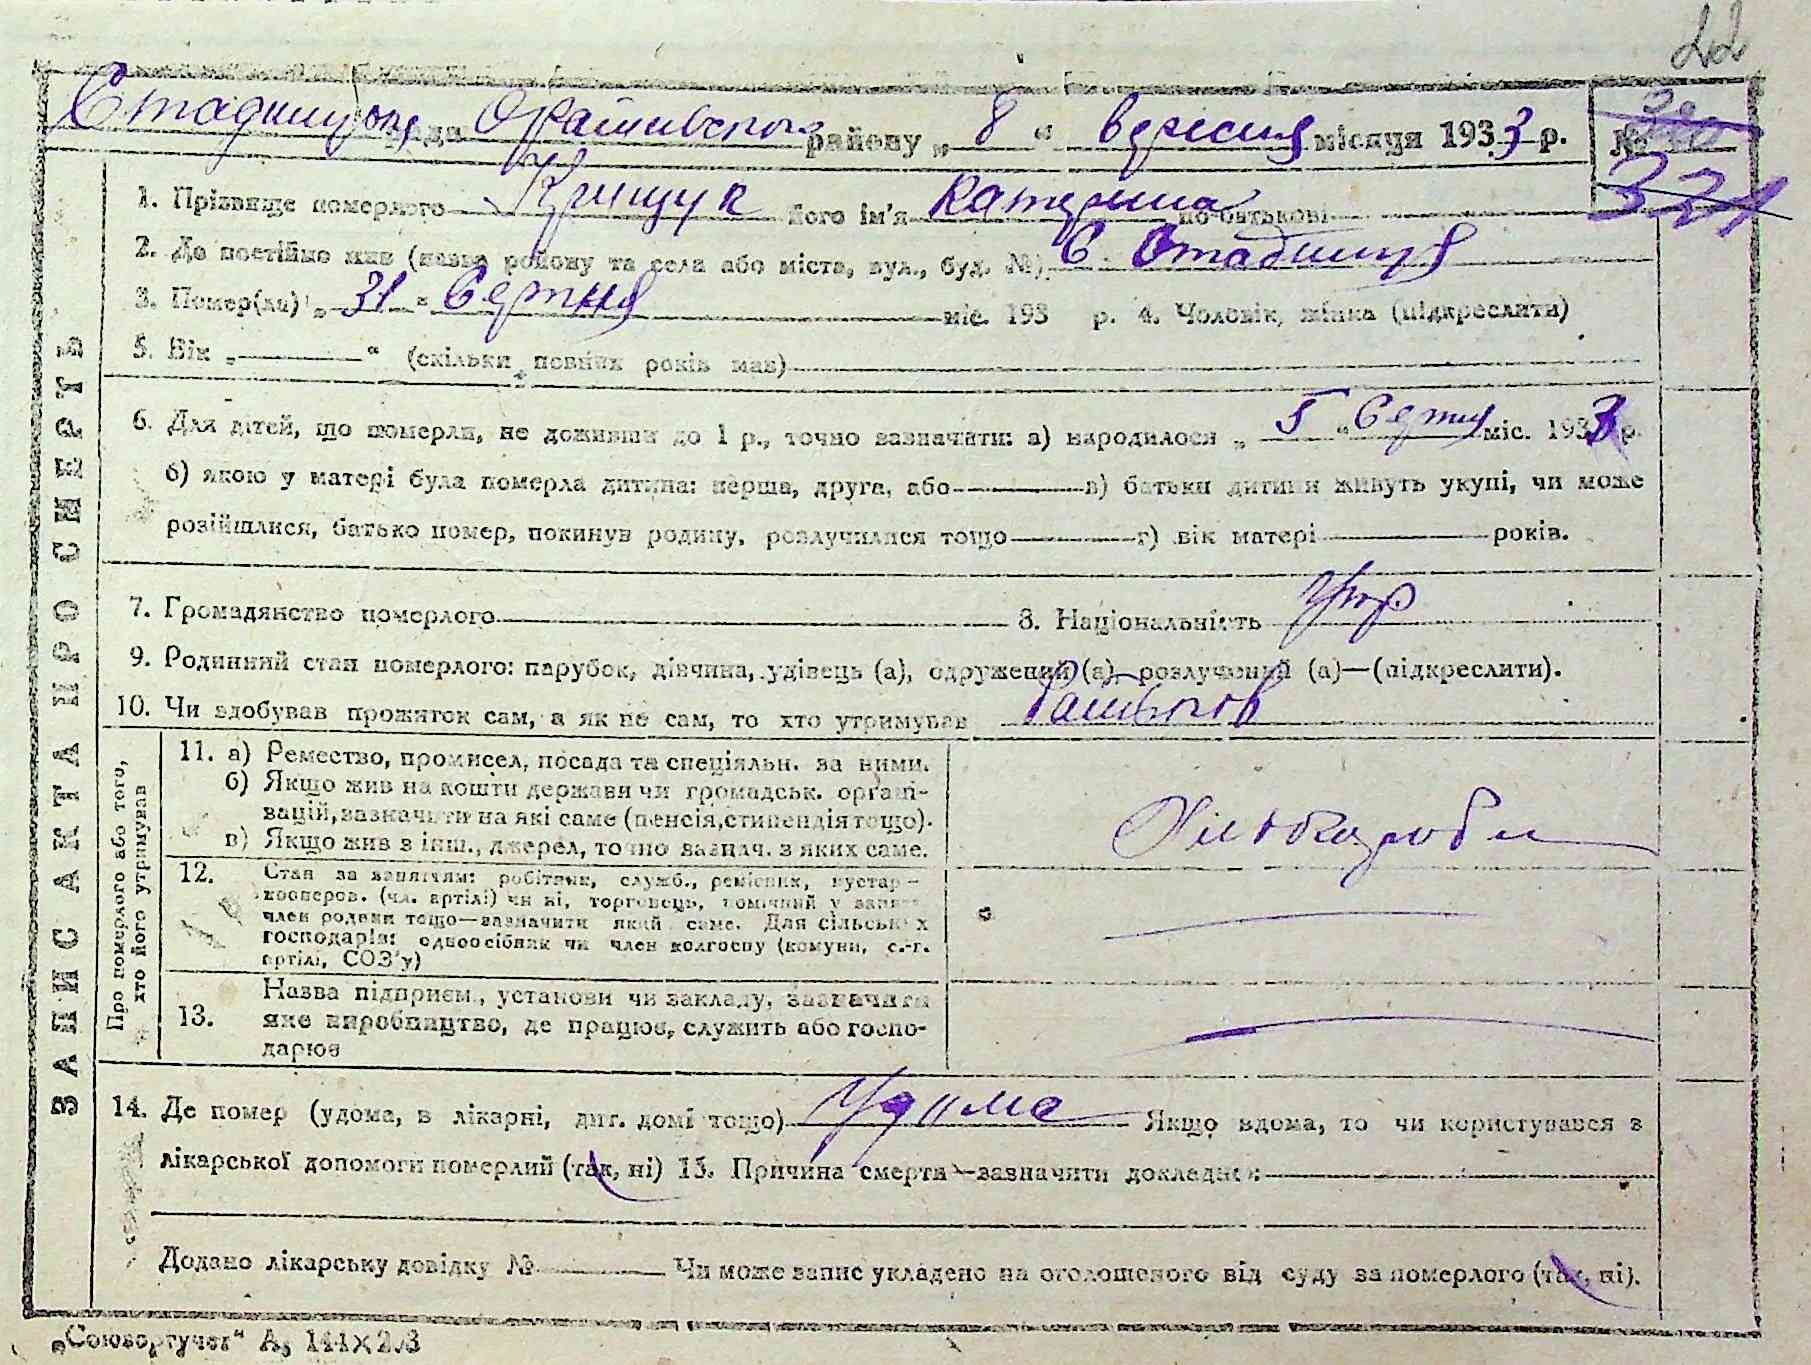 22
Стадницька рада Оратівського району „ 8 “ вересня місяця 1933 р. №
321
1. Прізвище померлого Грищук його ім'я Катерина по-батькові
2. Де постійно жив (назва району та села або міста, вул., буд. №) С. Стадниця
3. Помер(ла) „ 31 “ Серпня міс. 193 р. 4. Чоловік, жінка (підкреслити)
5. Вік „ “ (скільки повних років мав)
6. Для дітей, що померли, не доживши до 1 р., точно зазначити: а) народилося „ 5 “ Серпня міс. 1933 р.
б) якою у матері була померла дитина: перша, друга, або в) батьки дитини живуть укупі, чи може
розійшлися, батько помер, покинув родину, розлучилися тощо г) вік матері років.
7. Громадянство померлого 8. Національність Укр
9. Родинний стан померлого: парубок, дівчина, удівець (а), одружений (а), розлучений (а)—(підкреслити).
10. Чи здобував прожиток сам, а як не сам, то хто утримував
ЗАПИС АКТА ПРО СМЕРТЬ
Про померлого або того,
хто його утримував
11. а) Ремество, промисел, посада та спеціяльн. за ними.
б) Якщо жив на кошти держави чи громадськ. органі-
зацій, зазначити на які саме (пенсія, стипендія тощо).
в) Якщо жив з інш., джерел, точно зазнач. з яких саме.
Хліборобы
12. Стан за заняттям: робітник, служб., ремісник, кустар—
кооперов. (чл. артілі) чи ні, торговець, помічний у занят.
член родини тощо—зазначити який саме. Для сільських
господарів: одноосібник чи член колгоспу (комуни, с.-г.
артілі, СОЗ'у)
13. Назва підприєм., установи чи закладу, зазначити
яке виробництво, де працює, служить або госпо-
дарює
14. Де помер (удома, в лікарні, дит. домі тощо) Удома Якщо вдома, то чи користувався з
лікарської допомоги померлий (так, ні) 15. Причина смерти—зазначити докладно:
Додано лікарську довідку № Чи може запис укладено на оголошеного від суду за померлого (так, ні).
„Союзоргучет“ А, 144×203